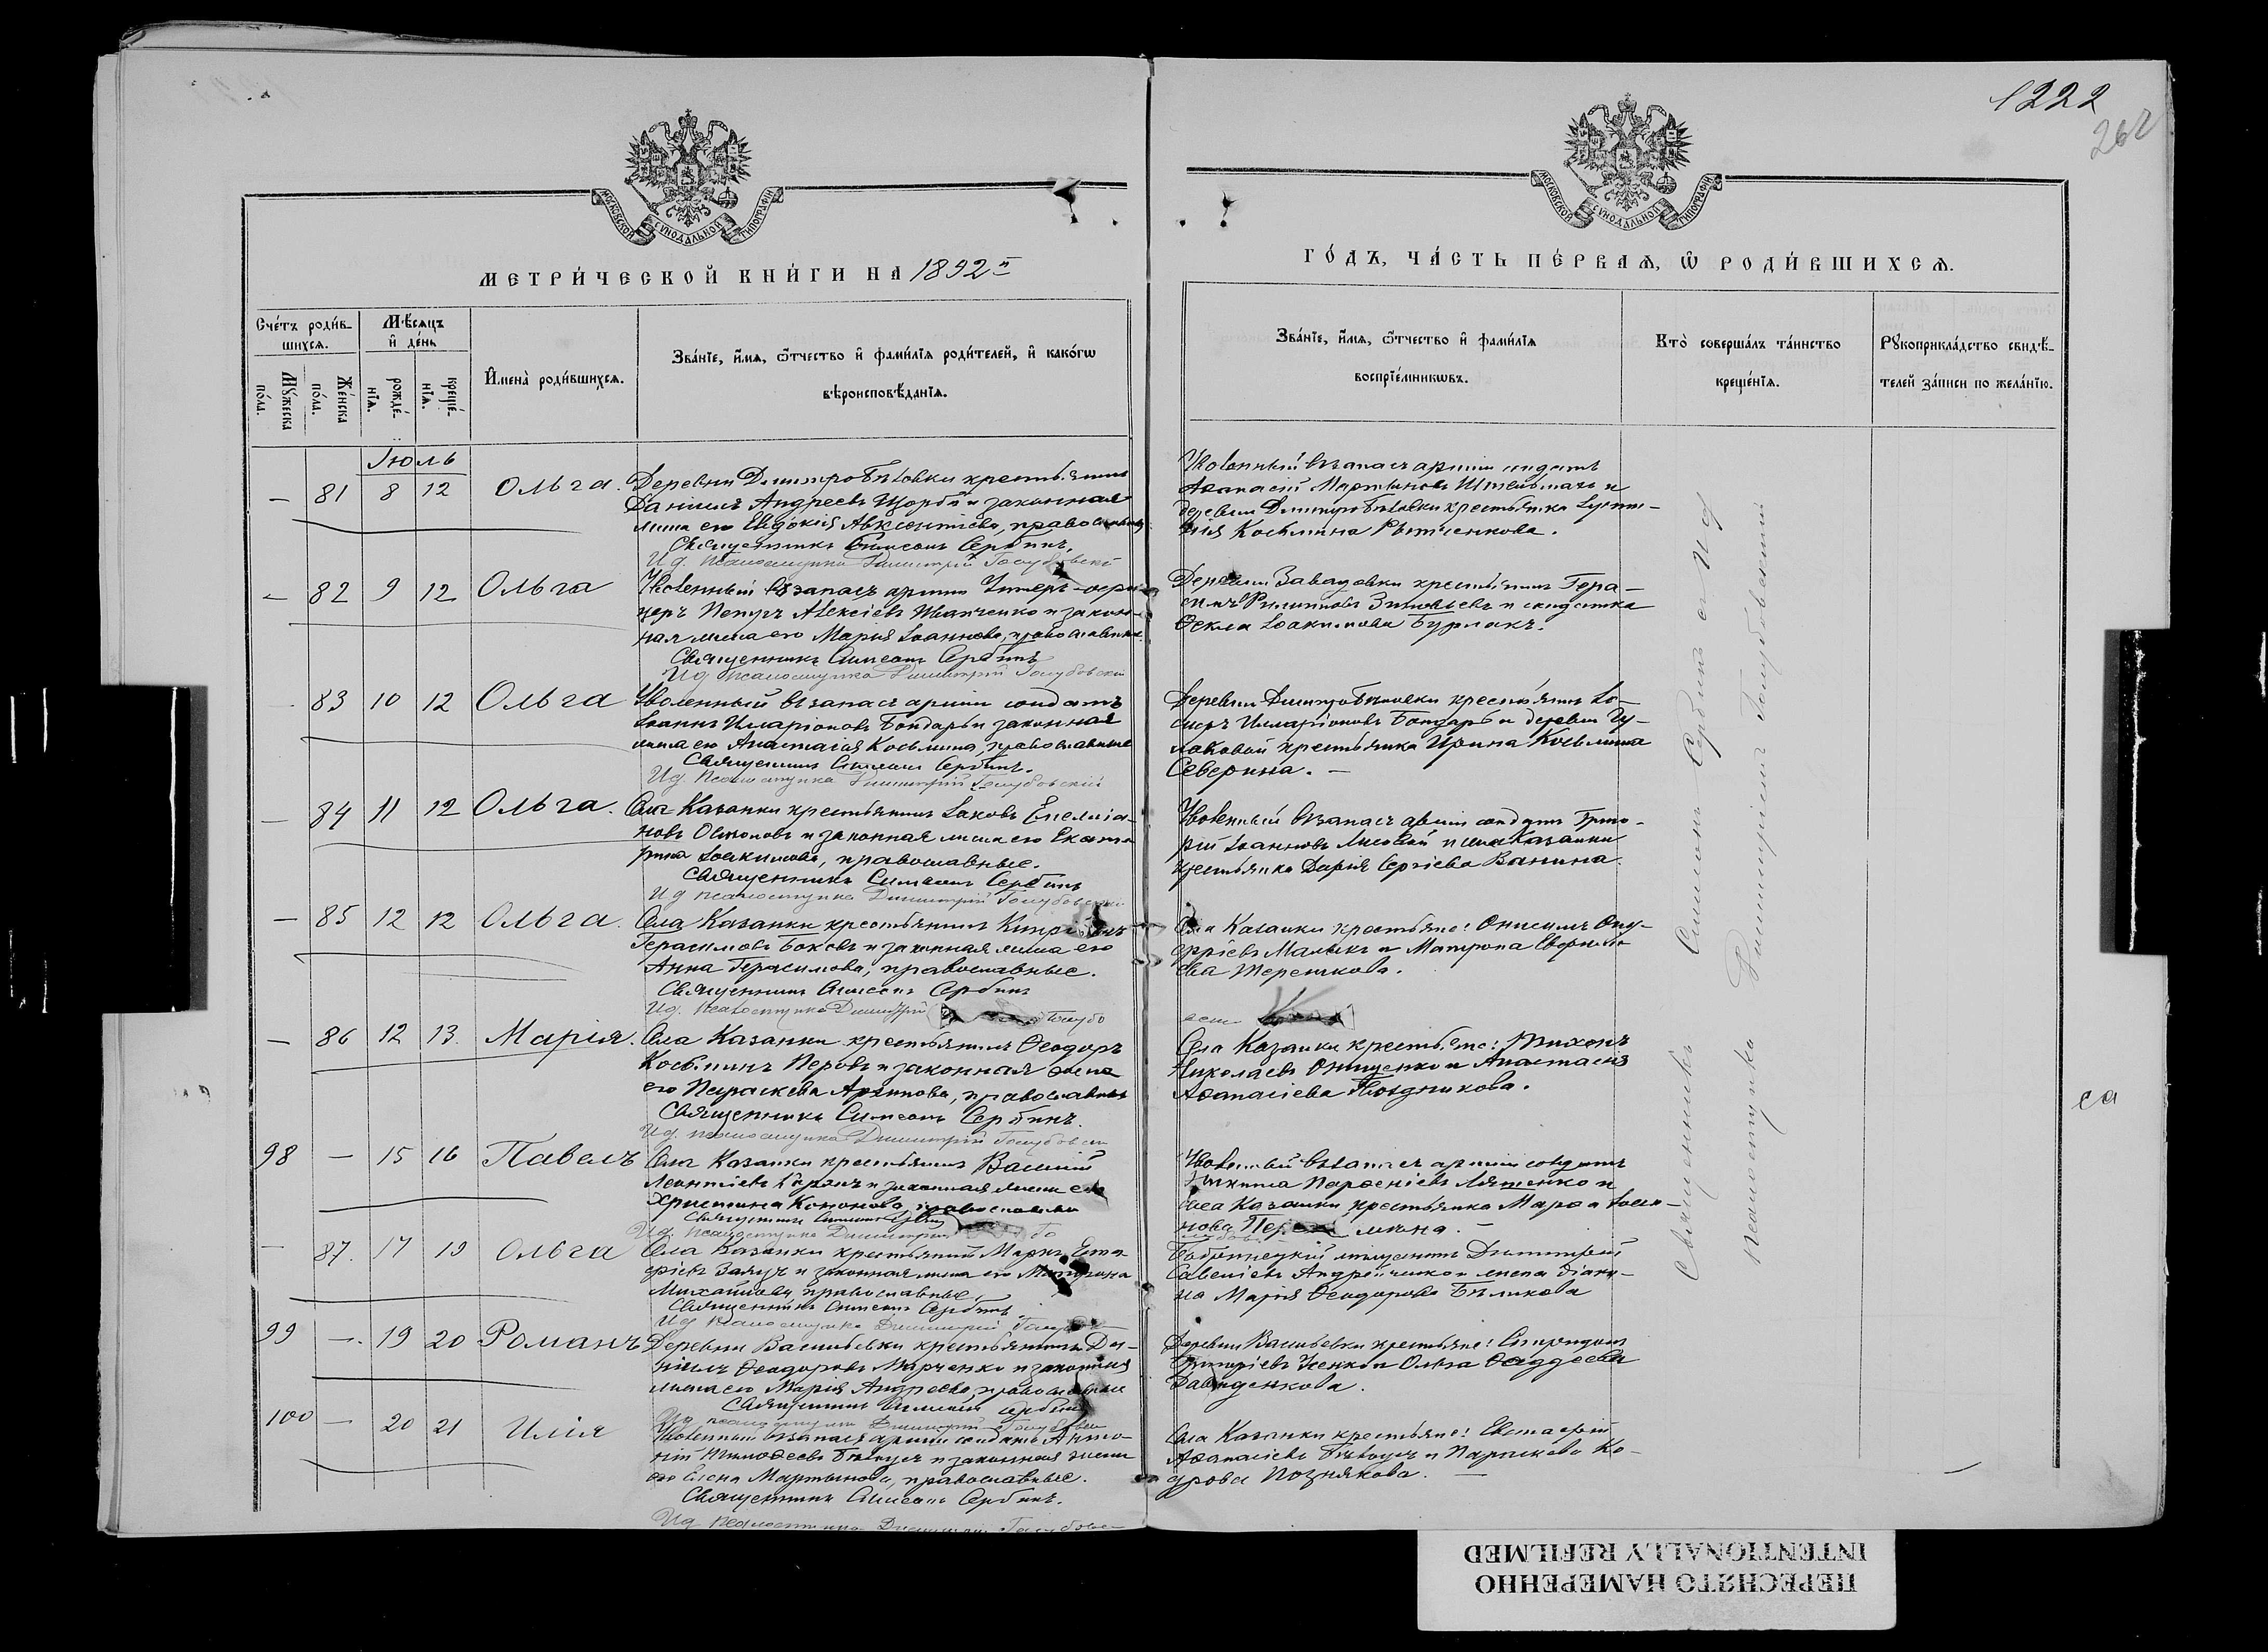 1222
262
МОСКОВСКОЙ СѴНОДАЛЬНОЙ ТИПОГРАФІИ
МОСКОВСКОЙ СѴНОДАЛЬНОЙ ТИПОГРАФІИ
МЕТРИ́ЧЕСКОЙ КНИ́ГИ НА 1892й
ГО́ДЪ, ЧА́СТЬ ПЕ́РВАѦ, Ѡ҆ РОДИ́ВШИХСѦ.
Сче́тъ роди́в-
шихсѧ.
Мꙋ́жеска
по́ла.
Же́нска
по́ла.
Мѣ́сѧцъ
и҆ де́нь
рожде́-
нїѧ.
креще́-
нїѧ.
И҆мена̀ роди́вшихсѧ.
Зва́нїе, и҆́мѧ, ѻ҆́тчество и҆ фами́лїѧ роди́телей, и҆ како́гѡ
вѣроисповѣ́данїѧ.
Зва́нїе, и҆́мѧ, ѻ҆́тчество и҆ фами́лїѧ
воспрїе́мникѡвъ.
Кто̀ соверша́лъ та́инство
креще́нїѧ.
Рꙋкоприкла́дство свидѣ́-
телей за́писи по жела́нїю.
Іюль
— 81 8 12 Ольга. Деревни Димитробѣловки крестьянинъ
Даніилъ Андреевъ Щорба и законная
жена его Евдокія Авксентіева, православные
Священникъ Симеонъ Сербинъ.
И.д. псаломщика Димитрій Голубовскій
Уволенный въ запасъ арміи солдатъ
Аѳанасій Мартиновъ и
деревни Димитробѣловки крестьянка
Косьмина
— 82 9 12 Ольга Уволенный въ запасъ арміи Унтеръ-офи
церъ Петръ Алексіевъ Иванченко и закон-
ная жена его Марія Іоаннова, православные
Священникъ Симеонъ Сербинъ
И.д. псаломщика Димитрій Голубовскій
Деревни Завадовки крестьянинъ Гера-
симъ Филипповъ Зиновьевъ и солдатка
Ѳекла Іоакимова Бурлакъ.
83 10 12 Ольга Уволенный въ запасъ арміи солдатъ
Іоаннъ Иларіоновъ Бондарь и законная
жена его Анастасія Косьмина, православные
Священникъ Симеонъ Сербинъ.
И.д. псаломщика Димитрій Голубовскій
Деревни Димитробѣловки крестьянинъ Іо-
сифъ Иларіоновъ Бондарь и деревни Гу-
лаковой крестьянка Ирина Косьмина
Северина. —
— 84 11 12 Ольга. Села Казанки крестьянинъ Іаковъ Емеліа-
новъ и законная жена его Екате
рина Іоакимова, православные.
Священникъ Симеонъ Сербинъ
И.д. псаломщика Димитрій Голубовскій
Уволенный въ запасъ арміи солдатъ Григо-
рій Іоанновъ Лисовой и села Казанки
крестьянка Дарія Сергіева Ванина
— 85 12 12 Ольга. Села Казанки крестьянинъ
Герасимовъ Боковъ и законная жена его
Анна Герасимова, православные.
Священникъ Симеонъ Сербинъ
И.д. псаломщика Димитрій Голубо
Села Казанки крестьяне: Онисимъ Ону-
фріевъ и Матрона
ева Терешкова.
— 86 12 13. Марія. Села Казанки крестьянинъ Ѳеодоръ
Косьминъ Перовъ и законная жена
его Параскева, православные
Священникъ Симеонъ Сербинъ.
И.д. псаломщика Димитрій Голубовскі
Села Казанки крестьяне: Тихонъ
Николаевъ Онищенко и Анастасія
Аѳанасіева Позднякова.
98 — 15 16 Павелъ Села Казанки крестьянинъ Василій
Леонтіевъ и законная жена его
Христина Кононова, православные
Священникъ Симеонъ Сербинъ
И.д. псаломщика Димитрій
Уволенный въ запасъ арміи солдатъ
Никита Парѳеніевъ Ляшенко и
села Казанки крестьянка Марѳа
— 87. 17 19 Ольга Села Казанки крестьянинъ Маркъ
Заяцъ и законная жена его Матрона
Михайлова, православные.
Священникъ Симеонъ Сербинъ
И.д. псаломщика Димитрій
Бобринецкій мѣщанинъ Димитрій
Савеліевъ Андрейченко и жена діако-
на Марія Ѳеодорова Бѣликова
99 —. 19 20 Романъ Деревни Васильевки крестьянинъ Да-
ніилъ Ѳеодоровъ Марченко и законная
жена его Марія Андреева, православные
Священникъ Симеонъ Сербинъ
И.д. псаломщика Димитрій Голубовскі
Деревни Васильевки крестьяне: Спиридонъ
Димитріевъ и Ольга Ѳаддеева
Давиденкова.
100 — 20 21 Илія Уволенный въ запасъ арміи солдатъ Анто-
ній Тимоѳеевъ и законная жена
его Елена Мартынова, православные.
Священникъ Симеонъ Сербинъ.
И.д. псаломщика Димитрій Голубовс
Села Казанки крестьяне: Евстафій
Аѳанасіевъ и Параскева Ко-
дрова Познякова. —
Священникъ Симеонъ Сербинъ и И.д.
Псаломщика Димитрій Голубовскій
са
ПЕРЕСНЯТО НАМЕРЕННО
INTENTIONALLY REFILMED